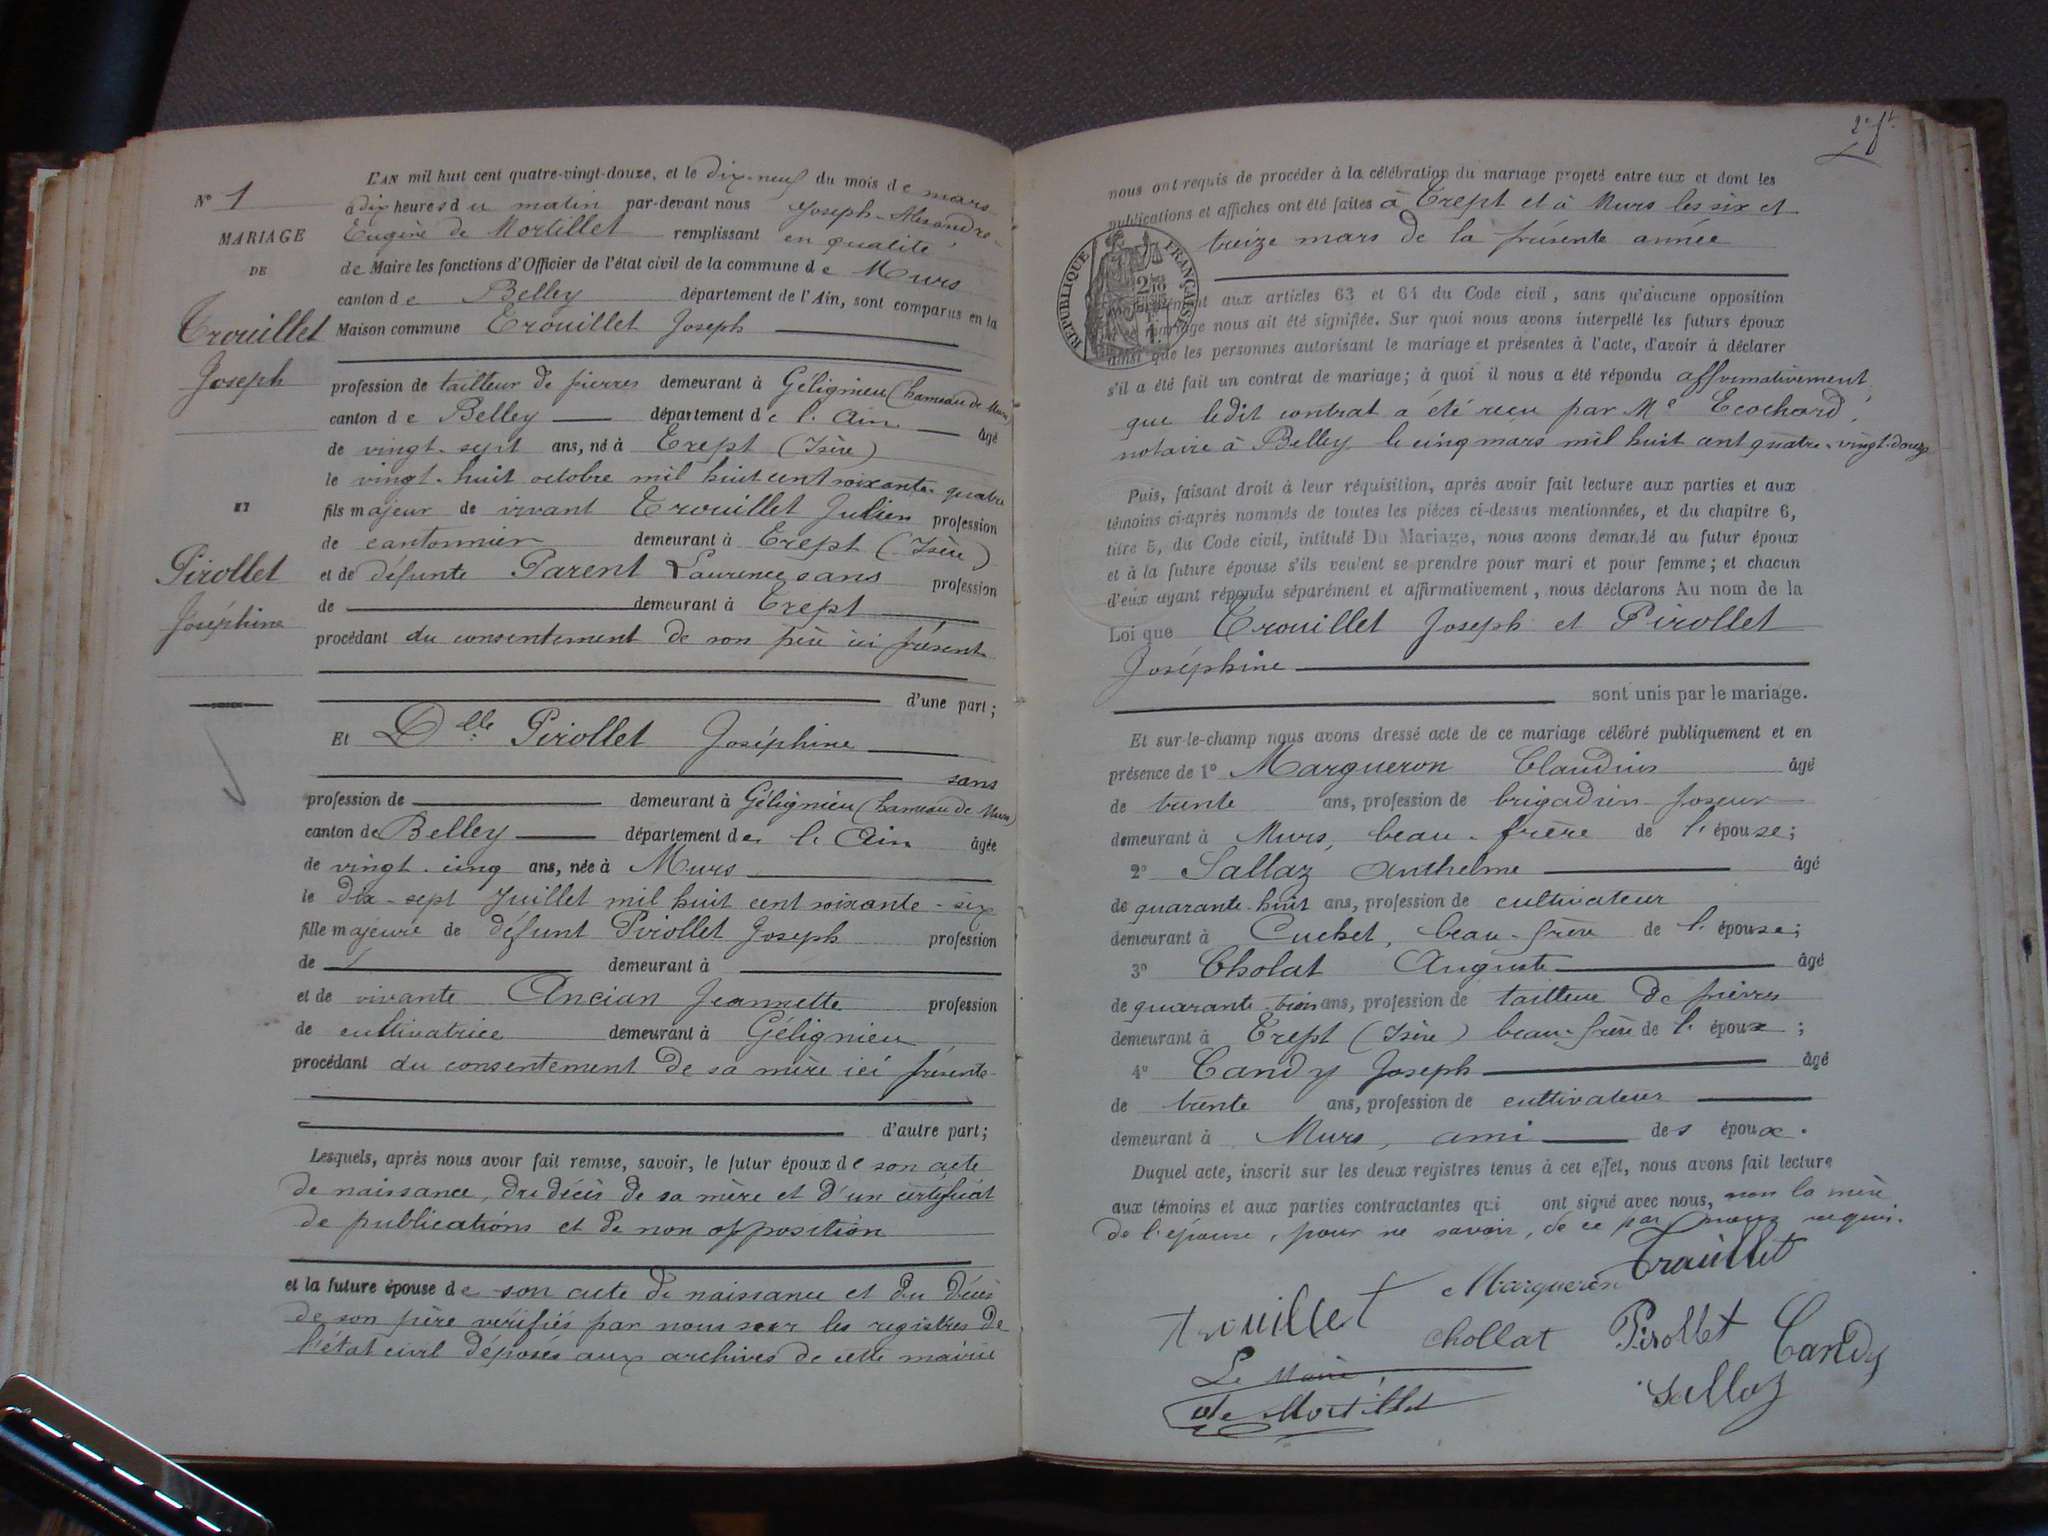 N° 1
MARIAGE
DE
Trouillet
Joseph
ET
Pirollet
Joséphine
L'AN mil huit cent quatre-vingt-douze, et le dix-neuf du mois de mars
à dix heures du matin par-devant nous Joseph-Alexandre-
Eugène de Mortillet remplissant en qualité
de Maire les fonctions d'Officier de l'état civil de la commune de Murs
canton de Belley département de l'Ain, sont comparus en la
Maison commune Trouillet Joseph
profession de tailleur de pierres demeurant à Gélignieu (hameau de Murs)
canton de Belley département de l'Ain âgé
de vingt-sept ans, né à Trept (Isère)
le vingt-huit octobre mil huit cent soixante-quatre
fils majeur de vivant Trouillet Julien profession
de cantonnier demeurant à Trept (Isère)
et de défunte Parent Laurence sans profession
de demeurant à Trept
procédant du consentement de son père ici présent
d'une part;
Et Dlle Pirollet Joséphine
sans
profession de demeurant à Gélignieu (hameau de Murs)
canton de Belley département de l'Ain âgée
de vingt-cinq ans, née à Murs
le dix-sept Juillet mil huit cent soixante-six
fille majeure de défunt Pirollet Joseph profession
de demeurant à
et de vivante Ancian Jeannette profession
de cultivatrice demeurant à Gélignieu
procédant du consentement de sa mère ici présente
d'autre part;
Lesquels, après nous avoir fait remise, savoir, le futur époux de son acte
de naissance, du décès de sa mère et d'un certificat
de publications et de non opposition
et la future épouse de son acte de naissance et du décès
de son père vérifiés par nous sur les registres de
l'état civil déposés aux archives de cette mairie
nous ont requis de procéder à la célébration du mariage projeté entre eux et dont les
publications et affiches ont été faites à Trept et à Murs les six et
treize mars de la présente année
RÉPUBLIQUE FRANÇAISE
aux articles 63 et 64 du Code civil, sans qu'aucune opposition
mariage nous ait été signifiée. Sur quoi nous avons interpellé les futurs époux
ainsi que les personnes autorisant le mariage et présentes à l'acte, d'avoir à déclarer
s'il a été fait un contrat de mariage; à quoi il nous a été répondu affirmativement,
que ledit contrat a été reçu par Me Ecochard,
notaire à Belley le cinq mars mil huit cent quatre-vingt-douze
Puis, faisant droit à leur réquisition, après avoir fait lecture aux parties et aux
témoins ci-après nommés de toutes les pièces ci-dessus mentionnées, et du chapitre 6,
titre 5, du Code civil, intitulé Du Mariage, nous avons demandé au futur époux
et à la future épouse s'ils veulent se prendre pour mari et pour femme; et chacun
d'eux ayant répondu séparément et affirmativement, nous déclarons Au nom de la
Loi que Trouillet Joseph et Pirollet
Joséphine
sont unis par le mariage.
Et sur-le-champ nous avons dressé acte de ce mariage célébré publiquement et en
présence de 1° Margueron Claudius âgé
de trente ans, profession de brigadier-poseur
demeurant à Murs, beau-frère de l'épouse;
2° Sallaz Anthelme âgé
de quarante-huit ans, profession de cultivateur
demeurant à Cuchet, beau-frère de l'épouse;
3° Cholat Auguste âgé
de quarante-trois ans, profession de tailleur de pierres
demeurant à Trept (Isère) beau-frère de l'époux;
4° Candy Joseph âgé
de trente ans, profession de cultivateur
demeurant à Murs, ami des époux.
Duquel acte, inscrit sur les deux registres tenus à cet effet, nous avons fait lecture
aux témoins et aux parties contractantes qui ont signé avec nous, non la mère
de l'épouse, pour ne savoir, de ce par nous requis.
Trouillet
Margueron
trouillet
chollat Pirollet Candy
Le Maire,
Sallaz
de Mortillet